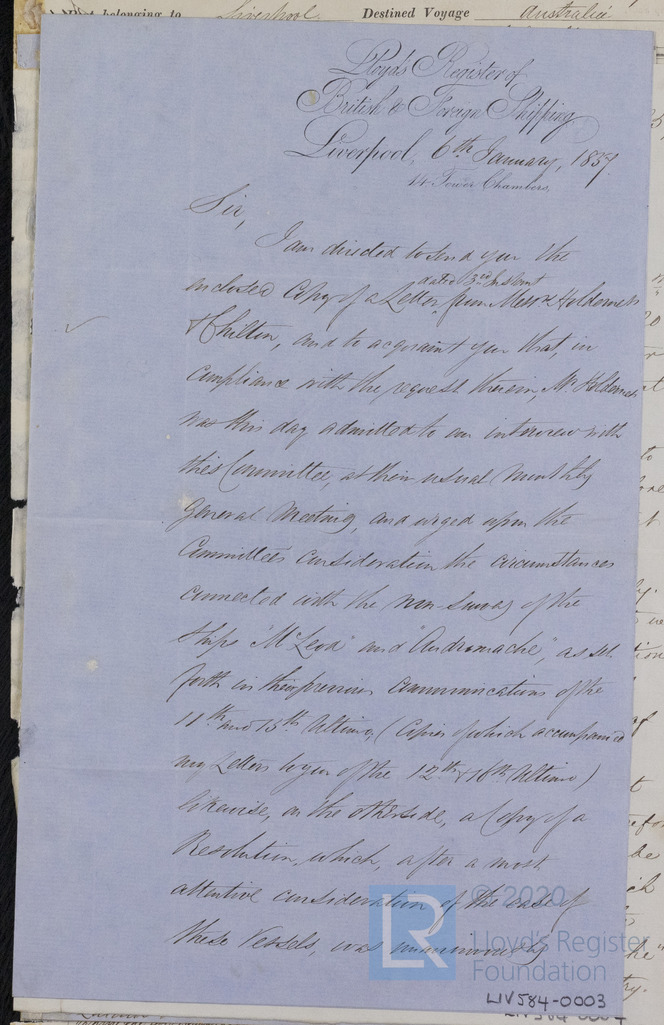 belonging to Liverpool Destined Voyage Australia
Lloyd's Register of
British & Foreign Shipping
Liverpool, 6th January, 1857.
14 Tower Chambers,
Sir,
I am directed to send you the
dated 3rd Instant
enclosed Copy of a Letter from Messrs Holderness
& Chilton, and to acquaint you that, in
compliance with the request therein, Mr Holderness
was this day admitted to an interview with
this Committee, at their usual Monthly
General Meeting, and urged upon the
Committee's consideration the circumstances
connected with the non-survey of the
Ships "McLeod" and "Andromache", as set
forth in their previous communications of the
11th and 15th Ultimo, (Copies of which accompanied
my Letters to you of the 12th & 16th Ultimo)
likewise, on the otherside, a Copy of a
Resolution, which, after a most
attentive consideration of the case of
these Vessels, was unanimously
© 2020
LR Lloyd's Register
Foundation
LIV584-0003